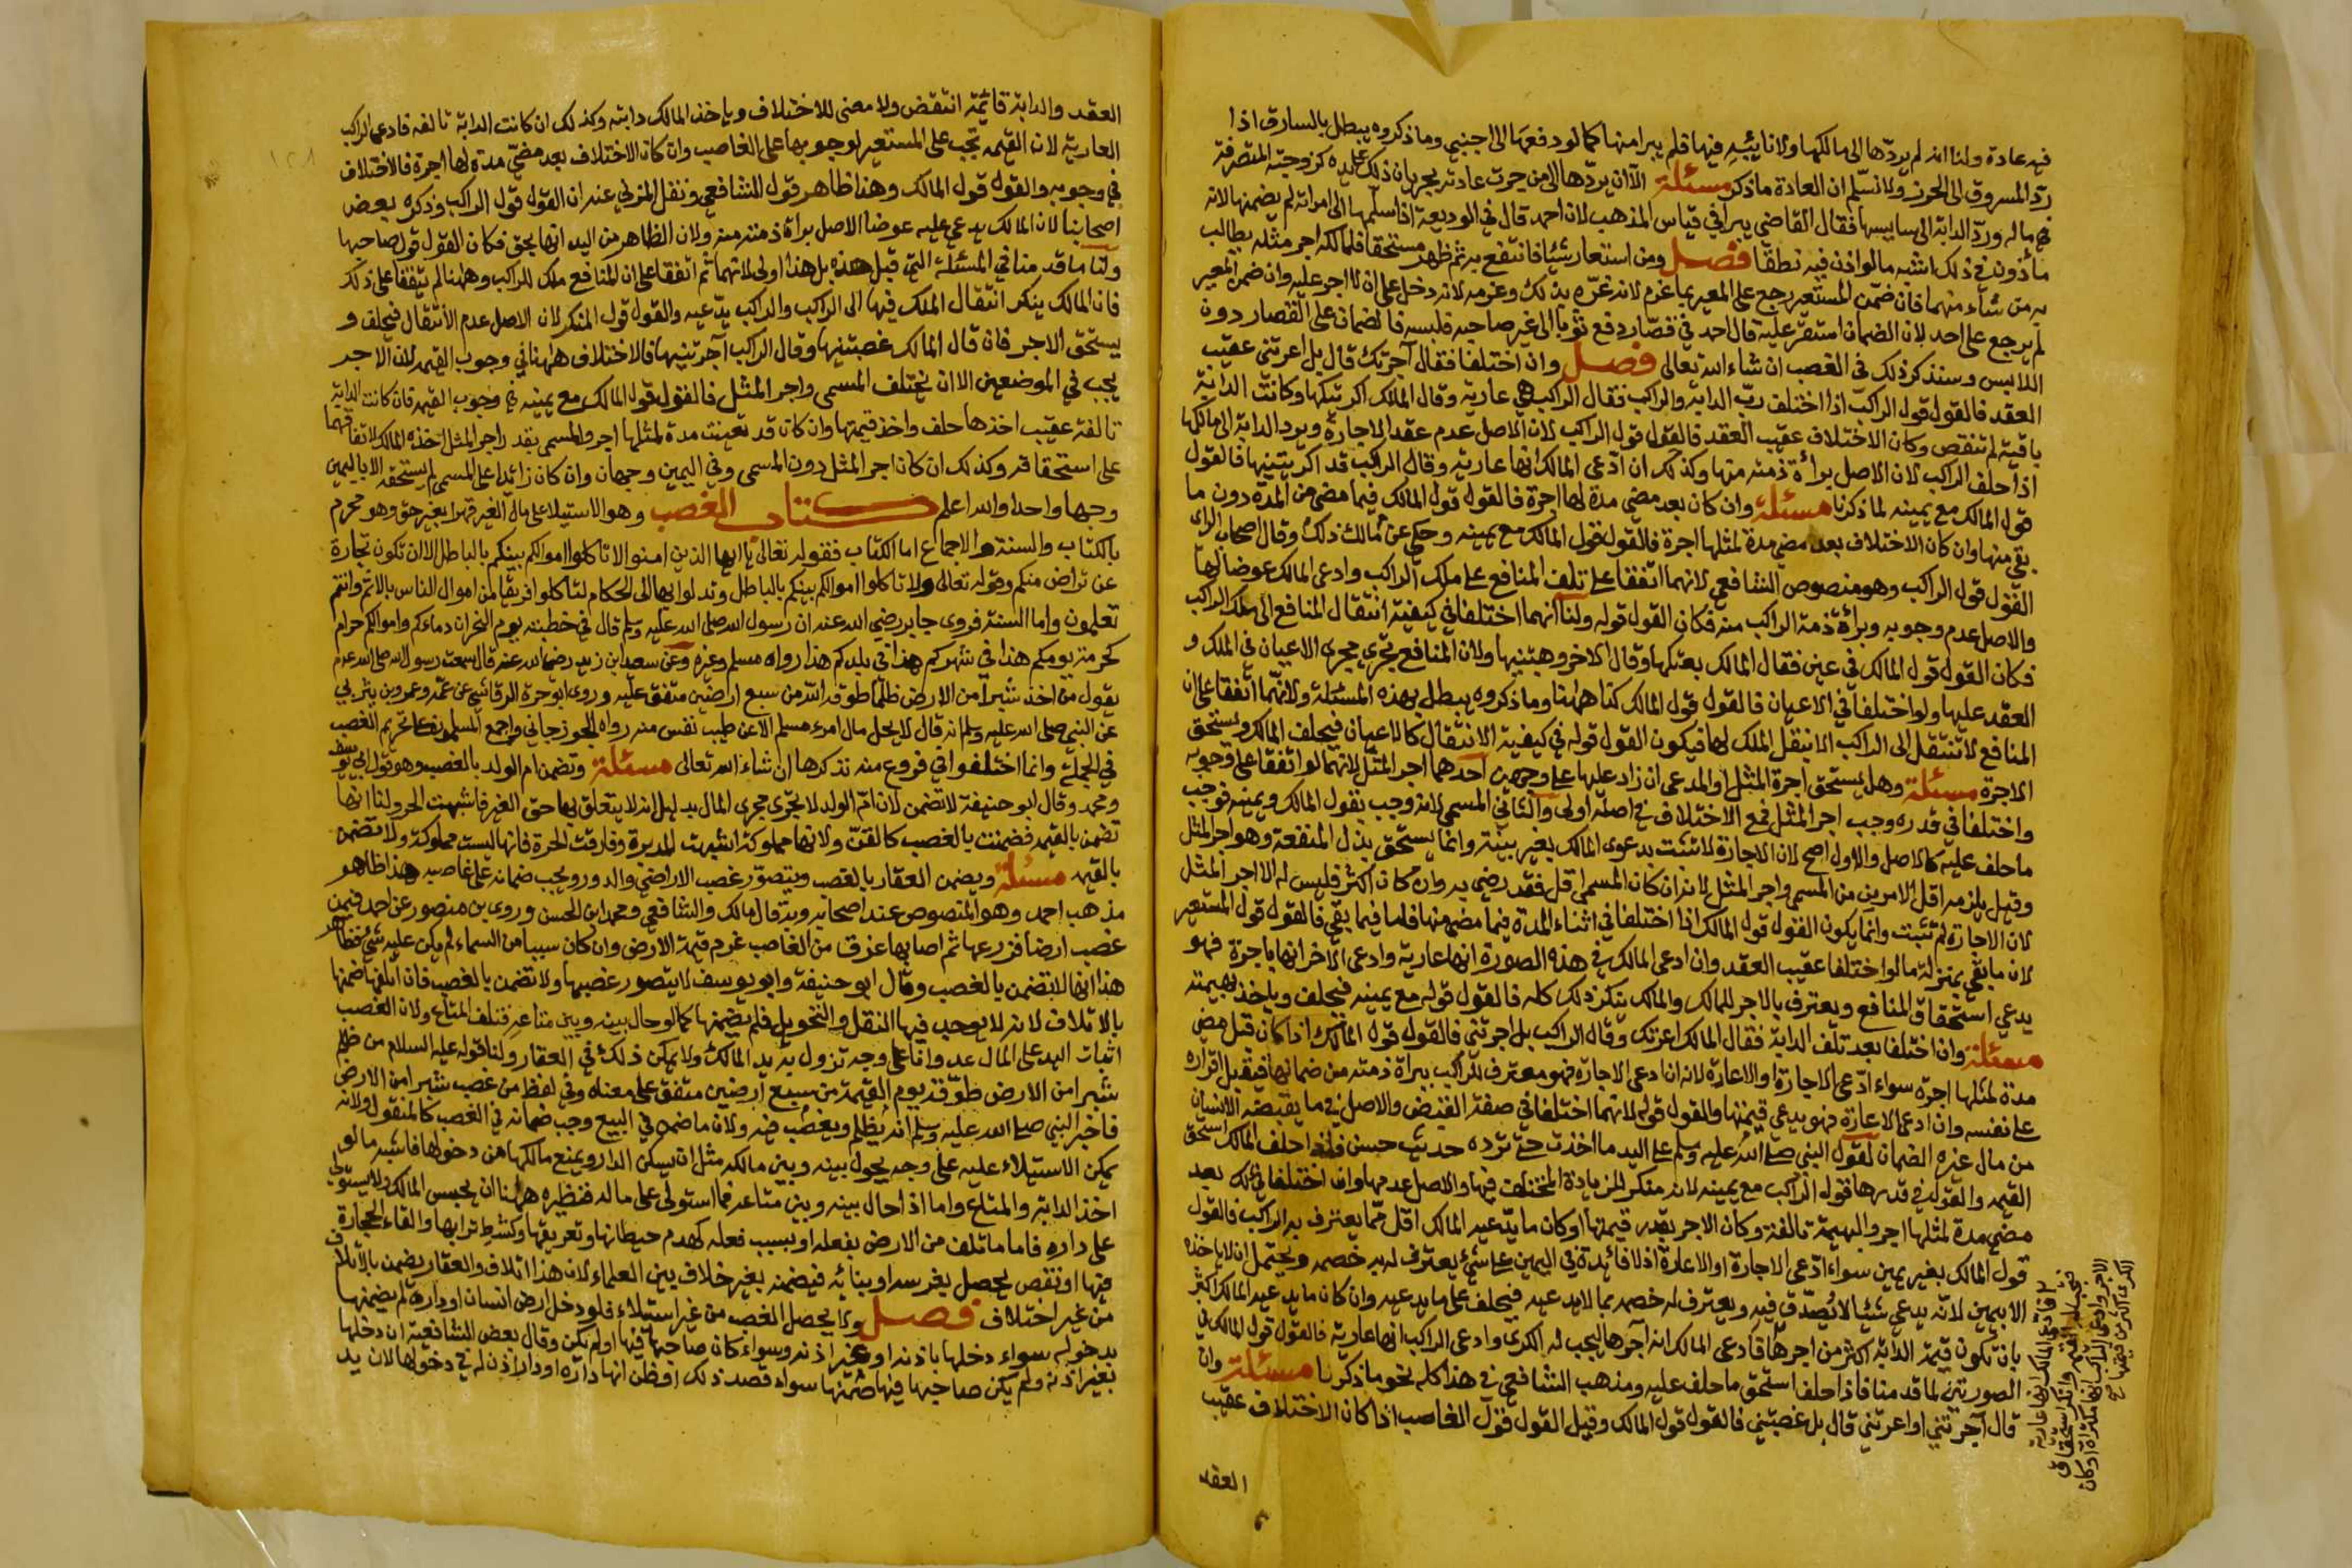 فيه عادة ولنا انه لم يردّها الى مالكها ولا نائبه فيها فلم يبرا منها كما لو دفعها الى اجنبي وما ذكروه يبطل بالسارق اذا
ردّ المسروق الى الحرز ولا نسلّم ان العادة ما ذكر مسئلة الّا ان يردّها الى من جرت عادته بجريان ذلك على يده كزوجته المتصرفة
في ماله وردّ الدابة الى سايسها فقال القاضي يبرا في قياس المذهب لان احمد قال في الوديعة اذا سلّمها الى امراته لم يضمنها لانه
مأذون في ذلك اشبه ما لو اذن فيه نطقا فصل ومن استعار شيئا فانتفع به ثم ظهر مستحقا فلمالكه اجر مثله يطالب
به من شاء منهما فان ضمّن المستعير رجع على المعير بما غرم لانه غرّه بذلك وغرمه لانه دخل على ان لا اجر عليه وان ضمن المعير
لم يرجع على احد لان الضمان استقرّ عليه قال احمد في قصّار دفع ثوبا الى غير صاحبه فلبسه فالضمان على القصار دون
اللابس وسنذكر ذلك في الغصب ان شاء الله تعالى فصل وان اختلفا فقال آجرتك قال بل اعرتني عقيب
العقد فالقول قول الراكب اذا اختلف ربّ الدابة والراكب فقال الراكب هي عارية وقال المالك اكريتكها وكانت الدابة
باقية لم تنقص وكان الاختلاف عقيب العقد فالقول قول الراكب لان الاصل عدم عقد الاجارة ويرد الدابة الى مالكها
اذا حلف الراكب لان الاصل براءة ذمته منها وكذلك ان ادّعى المالك انها عارية وقال الراكب قد اكريتنيها فالقول
قول المالك مع يمينه لما ذكرنا مسئلة وان كان بعد مضي مدة لها اجرة فالقول قول المالك فيما مضى من المدة دون ما
بقي منها وان كان الاختلاف بعد مضي مدة لمثلها اجرة فالقول قول المالك مع يمينه وحكي عن مالك ذلك وقال اصحاب الراي
القول قول الراكب وهو منصوص الشافعي لانهما اتفقا على تلف المنافع على ملك الراكب وادعى المالك عوضا لها
والاصل عدم وجوبه وبراءة ذمة الراكب منه فكان القول قوله ولنا انهما اختلفا في كيفية انتقال المنافع الى ملك الراكب
فكان القول قول المالك في عين فقال المالك بعتكها وقال الاخر وهبتنيها ولان المنافع تجري مجرى الاعيان في الملك و
العقد عليها ولو اختلفا في الاعيان فالقول قول المالك كذا ههنا وما ذكروه يبطل بهذه المسئلة ولانهما اتفقا على ان
المنافع لا تنتقل الى الراكب الا بنقل الملك لها فيكون القول قوله في كيفية الانتقال كالاعيان فيحلف المالك ويستحق
الاجرة مسئلة وهل يستحق اجرة المثل او المدعى ان زاد عليها على وجهين احدهما اجر المثل لانهما لو اتفقا على وجوبه
واختلفا في قدره وجب اجر المثل فمع الاختلاف في اصله اولى والثاني المسمى لانه وجب بقول المالك ويمينه فوجب
ما حلف عليه كالاصل والاول اصح لان الاجارة لا تثبت بدعوى المالك بغير بينة وانما يستحق بذل المنفعة وهو اجر المثل
وقيل يلزمه اقل الامرين من المسمى واجر المثل لانه ان كان المسمى اقل فقد رضي به وان كان اكثر فليس له الا اجر المثل
لان الاجارة لم تثبت وانما يكون القول قول المالك اذا اختلفا في اثناء المدة فيما مضى منها فاما فيما بقي فالقول قول المستعير
لان ما بقي بمنزلة ما لو اختلفا عقيب العقد وان ادعى المالك في هذه الصورة انها عارية وادعى الاخر انها باجرة فهو
يدعي استحقاق المنافع ويعترف بالاجر للمالك والمالك ينكر ذلك كله فالقول قوله مع يمينه فيحلف وياخذ بهيمته
مسئلة وان اختلفا بعد تلف الدابة فقال المالك اعرتك وقال الراكب بل اجرتني فالقول قول المالك اذا كان قبل مضي
مدة لمثلها اجرة سواء ادّعى الاجارة او الاعارة لانه ان ادعى الاجارة فهو معترف للراكب ببراة ذمته من ضمانها فيقبل اقراره
على نفسه وان ادعى الاعارة فهو يدعي قيمتها والقول قوله لانهما اختلفا في صفة القبض والاصل في ما يقبضه الانسان
من مال غيره الضمان لقول النبي صلى الله عليه وسلم على اليد ما اخذت حتى ترده حديث حسن فاذا حلف المالك استحق
القيمة والقول في قدرها قول الراكب مع يمينه لانه منكر للزيادة المختلف فيها والاصل عدمها وان اختلفا في ذلك بعد
مضي مدة لمثلها اجر والبهيمة تالفة وكان الاجر بقدر قيمتها او كان ما يدّعيه المالك اقل ممّا يعترف به الراكب فالقول
قول المالك بغير يمين سواء ادّعى الاجارة او الاعارة اذ لا فائدة في اليمين على شيء يعترف له به خصمه ويحتمل ان لا ياخذه
الا بيمين لانّه يدعي شيئا لا يُصدّق فيه ويعترف له خصمه بما لا يدعيه فيحلف على ما يدعيه وان كان ما يدعيه المالك اكثر
بان تكون قيمة الدابة اكثر من اجرها فادعى المالك انه آجرها ليجب له الكرى وادعى الراكب انها عارية فالقول قول المالك في
الصورتين لما قدمنا فاذا حلف استحق ما حلف عليه ومذهب الشافعي في هذا كله نحو ما ذكرنا مسئلة وان
قال آجرتني او اعرتني قال بل غصبتني فالقول قول المالك وقيل القول قول الغاصب اذا كان الاختلاف عقيب
العقد
فادعى المالك انها عارية
لتجب له القيمة وانكر استحقاق
الاجر وادعى الراكب انها مكتراة او كان
الكرى اكثر من قيمتها صح
العقد والدابة قائمة انتقض ولا معنى للاختلاف وياخذ المالك دابته وكذلك ان كانت الدابة تالفه فادعى الراكب
العارية لان القيمه تجب على المستعير لوجوبها على الغاصب وان كان الاختلاف بعد مضيّ مدة لها اجرة فالاختلاف
في وجوبه والقول قول المالك وهذا ظاهر قول الشافعي ونقل المزني عنه ان القول قول الراكب وذكره بعض
اصحابنا لان المالك يدعي عليه عوضا الاصل براءة ذمته منه ولان الظاهر من اليد انها بحق فكان القول قول صاحبها
ولنا ما قدمنا في المسئلة التي قبل هذه بل هذا اولى لانهما ثم اتفقا على ان المنافع ملك للراكب وههنا لم يتفقا على ذلك
فان المالك ينكر انتقال الملك فيها الى الراكب والراكب يدّعيه والقول قول المنكر لان الاصل عدم الانتقال فيحلف و
يستحق الاجر فان قال المالك غصبتنيها وقال الراكب آجرتنيها فالاختلاف ههنا في وجوب القيمه لان الاجر
يجب في الموضعين الا ان يختلف المسمى واجر المثل فالقول قول المالك مع يمينه في وجوب القيمه فان كانت الدابة
تالفة عقيب اخذها حلف واخذ قيمتها وان كان قد بقيت مدة لمثلها اجر والمسمى بقدر اجر المثل اخذه المالك لاتفاقهما
على استحقاقه وكذلك ان كان اجر المثل دون المسمى وفي اليمين وجهان وان كان زائدا على المسمى لم يستحقه الا باليمين
وجها واحدا والله اعلم كتاب الغصب وهو الاستيلا على مال الغير قهرا بغير حق وهو محرم
بالكتاب والسنة والاجماع اما الكتاب فقوله تعالى يا ايها الذين امنوا لا تاكلوا اموالكم بينكم بالباطل الا ان تكون تجارة
عن تراض منكم وقوله تعالى ولا تاكلوا اموالكم بينكم بالباطل وتدلوا بها الى الحكام لتاكلوا فريقا من اموال الناس بالاثم وانتم
تعلمون واما السنة فروى جابر رضي الله عنه ان رسول الله صلى الله عليه وسلم قال في خطبته يوم النحر ان دماءكم واموالكم حرام
كحرمة يومكم هذا في شهركم هذا في بلدكم هذا رواه مسلم وغيره وعن سعيد ابن زيد رضي الله عنه قال سمعت رسول الله صلى الله عليه وسلم
يقول من اخذ شبراً من الارض ظلمًا طوقه الله من سبع ارضين متفق عليه وروى ابو حرة الرقاشي عن عمّه وعمرو بن يثربي
عن النبي صلى الله عليه وسلم انه قال لا يحل مال امرء مسلم الا عن طيب نفس منه رواه الجوزجاني واجمع المسلمون على تحريم الغصب
في الجملة وانما اختلفوا في فروع منه نذكرها ان شاء الله تعالى مسئلة وتضمن ام الولد بالغصب وهو قول ابي يوسف
ومحمد وقال ابو حنيفة لا تضمن لان امّ الولد لا تجري مجرى المال بدليل انه لا يتعلق بها حق الغير فاشبهت الحر ولنا انها
تضمن بالقيمه فضمنت بالغصب كالقنّ ولانها مملوكة اشبهت المدبرة وفارقت الحرة فانها ليست مملوكة ولا تضمن
بالقيمه مسئلة ويضمن العقار بالغصب ويتصوّر غصب الاراضي والدور ويجب ضمانه على غاصبه وهذا ظاهر
مذهب احمد وهو المنصوص عند اصحابه وبه قال مالك والشافعي ومحمد ابن الحسن وروى بن منصور عن احمد فيمن
غصب ارضا فزرعها ثم اصابها غرق من الغاصب غرم قيمة الارض وان كان سببا من السماء لم يكن عليه شيء فظاهر
هذا انها لا تضمن بالغصب وقال ابو حنيفة وابو يوسف لا يتصور غصبها ولا تضمن بالغصب فان اتلفها ضمنها
بالاتلاف لانه لا يوجد فيها النقل والتحويل فلم يضمنها كما لو حال بينه وبين متاعه فتلف المتاع ولان الغصب
اثبات اليد على المال عدوانا على وجه تزول به يد المالك ولا يمكن ذلك في العقار ولنا قوله عليه السلام من ظلم
شبرا من الارض طوّقه يوم القيمة من سبع ارضين متفق على معناه وفي لفظ من غصب شبرا من الارض
فاخبر النبي صلى الله عليه وسلم انه يُظلم ويغصب فيه ولان ما ضمن في البيع وجب ضمانه في الغصب كالمنقول ولانه
يمكن الاستيلاء عليه على وجه يحول بينه وبين مالكه مثل ان يسكن الدار ويمنع مالكها من دخولها فاشبه ما لو
اخذ الدابة والمتاع واما اذا حال بينه وبين متاعه فما استولى على ماله فنظيره ههنا ان يحبس المالك ولا يستولي
على داره فاما ما تلف من الارض بفعله او بسبب فعله كهدم حيطانها وتغريقها وكشط ترابها والقاء الحجارة
فيها او نقص يحصل بغرسه او بنائه فيضمنه بغير خلاف بين العلماء لان هذا اتلاف والعقار يضمن بالاتلاف
من غير اختلاف فصل ولا يحصل الغصب من غير استيلاء فلو دخل ارض انسان او داره لم يضمنها
بدخوله سواء دخلها باذنه او غير اذنه وسواء كان صاحبها فيها او لم يكن وقال بعض الشافعية ان دخلها
بغير اذنه ولم يكن صاحبها فيها ضمنها سواء قصد ذلك او ظن انها داره او دار اذن له في دخولها لان يد